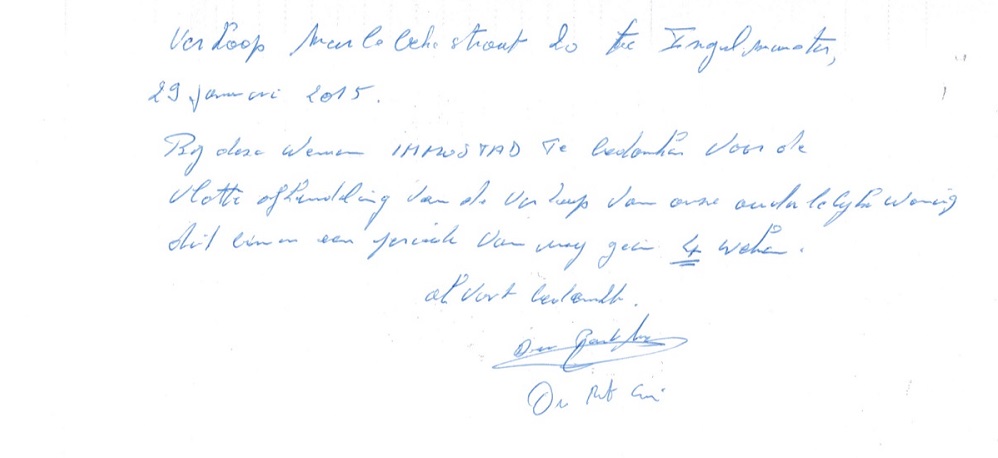 Verkoop straat 20 te Ingelmunster,
29 januari 2015.
Bij deze wensen IMMOSTAD te bedanken voor de
vlotte afhandeling van de verkoop van onze ouderlelijke woning
dit binnen een periode van nog geen 4 weken.
alvast bedankt.